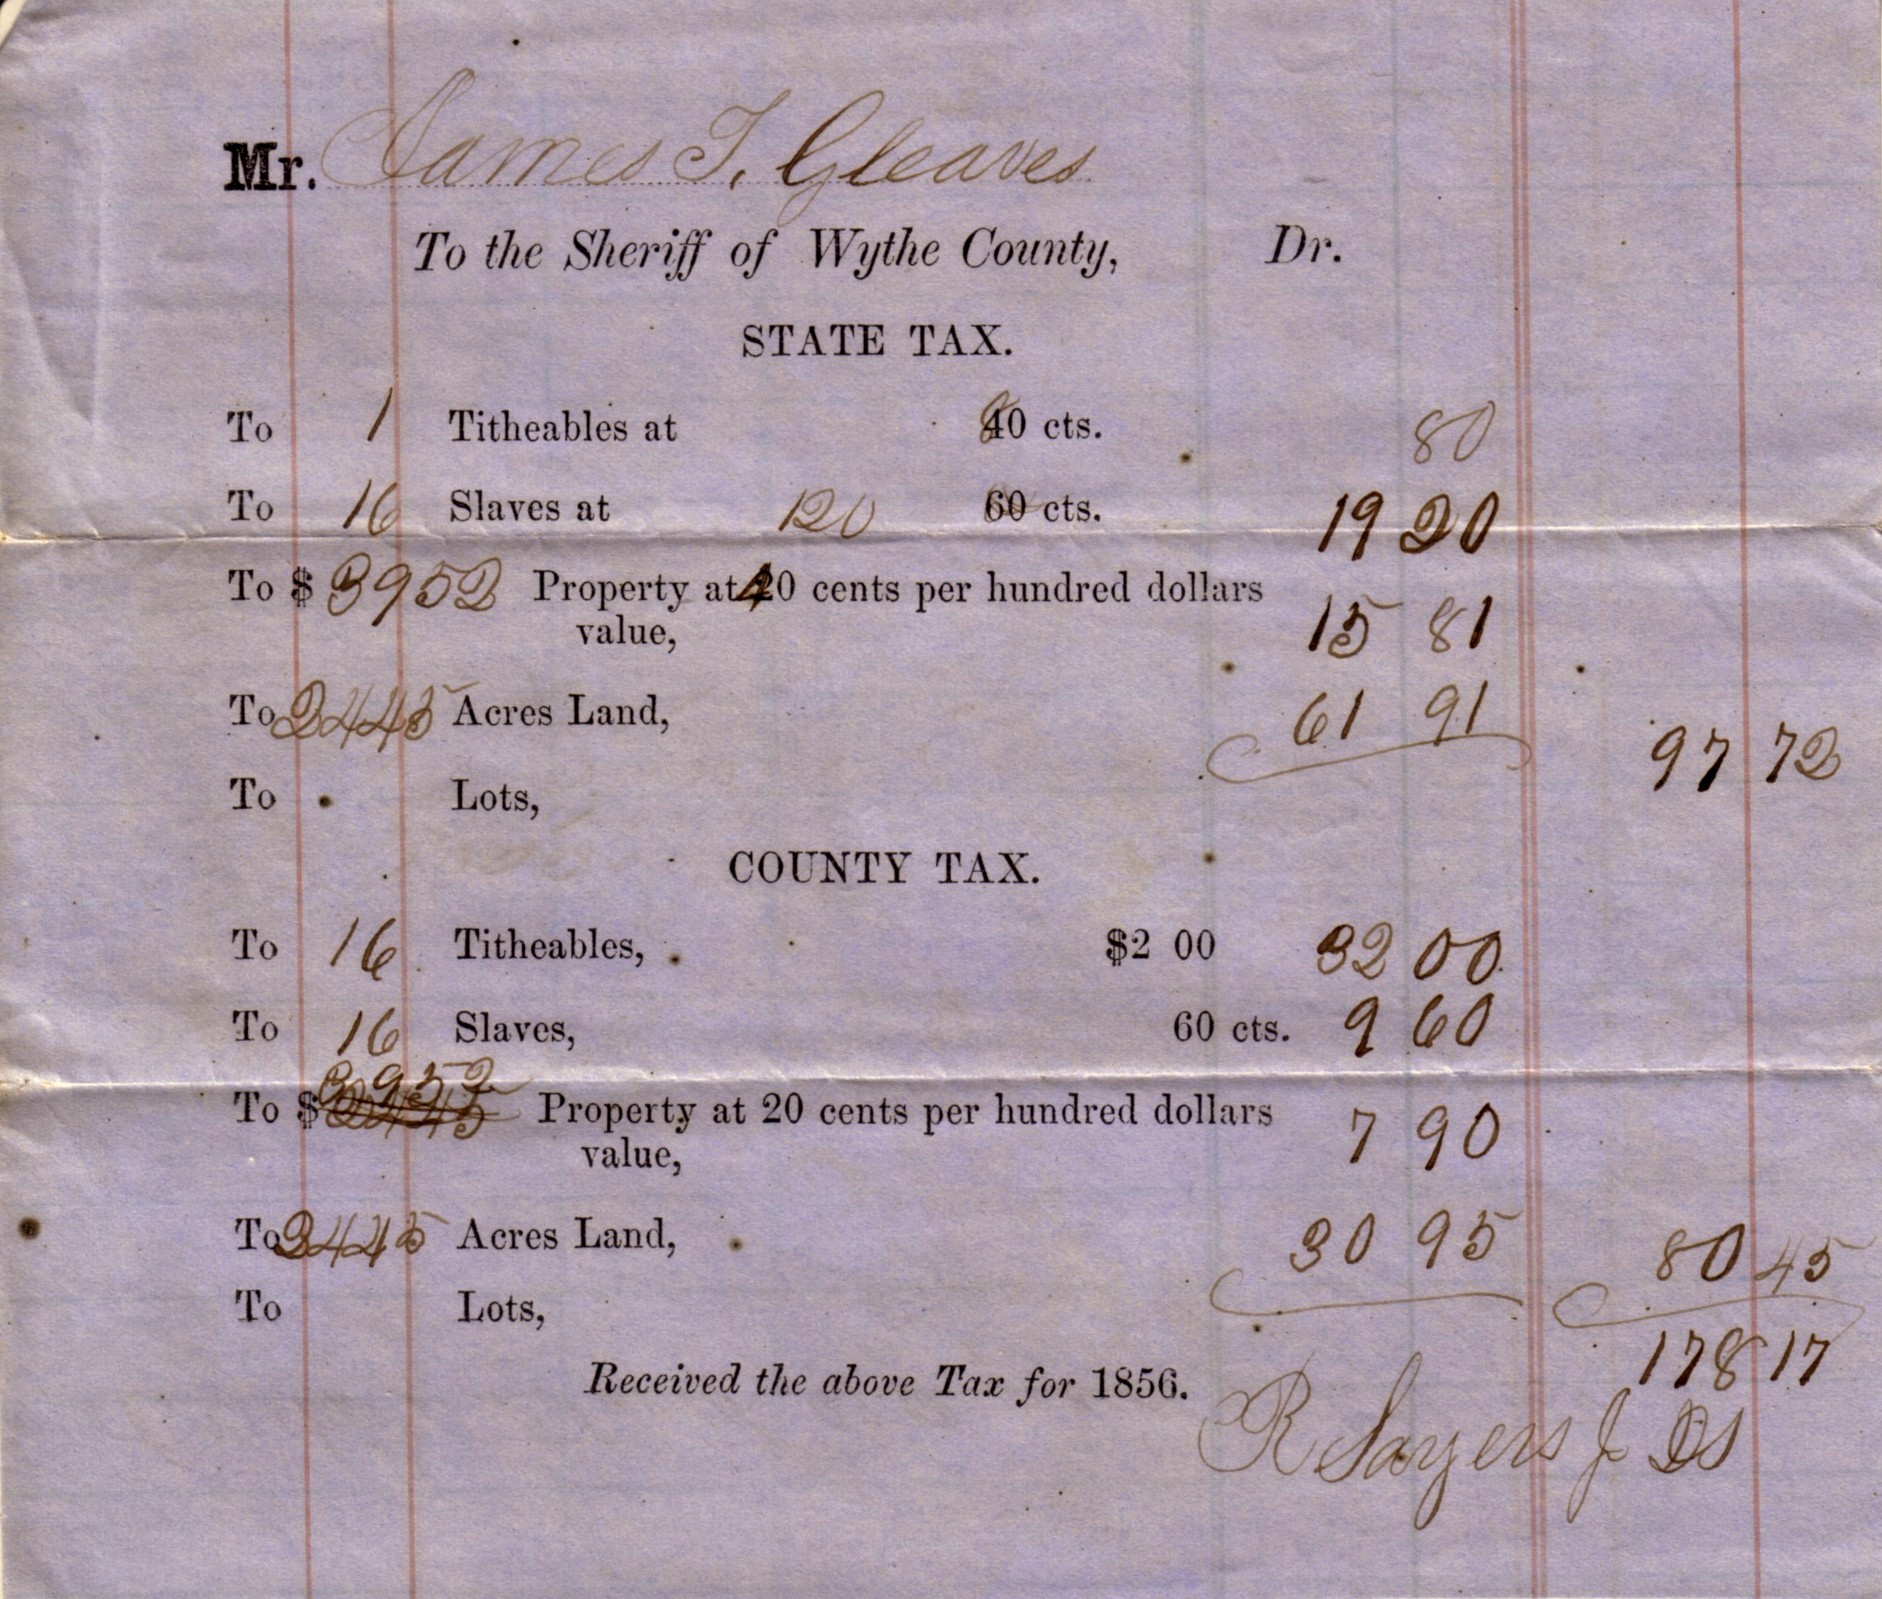 Mr. James T. Gleaves
To the Sheriff of Wythe County, Dr.
STATE TAX.
To 1 Titheables at 80 cts. 80
To 16 Slaves at 120 60 cts. 19 20
To $ 3952 Property at 40 cents per hundred dollars
value, 15 81
To 2445 Acres Land, 61 91
97 72
To Lots,
COUNTY TAX.
To 16 Titheables, $2 00 32 00
To 16 Slaves, 60 cts. 9 60
3952
To $ 2445 Property at 20 cents per hundred dollars
value, 7 90
To 2445 Acres Land, 30 95 80 45
To Lots,
178 17
Received the above Tax for 1856.
R Sayers J DS